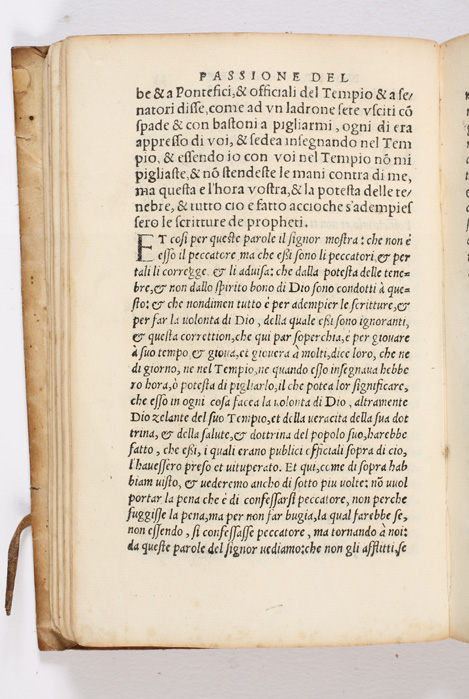 PASSIONE DEL
be & a Pontefici, & officiali del Tempio & a se/
natori disse, come ad vn ladrone sete vsciti cō
spade & con bastoni a pigliarmi, ogni di era
appresso di voi, & sedea insegnando nel Tem
pio, & essendo io con voi nel Tempio nō mi
pigliaste, & nō stendeste le mani contra di me,
ma questa e l'hora vostra, & la potesta delle te/
nebre, & tutto cio e fatto accioche s'adempies
sero le scritture de propheti.
ET cosi per queste parole il signor mostra: che non è
esso il peccatore ma che essi sono li peccatori, & per
tali li corregge & li aduisa: che dalla potesta delle tene=
bre, & non dallo spirito bono di Dio sono condotti à que=
sto: & che nondimen tutto è per adempier le scritture, &
per far la uolonta di Dio, della quale essi sono ignoranti,
& questa correttion, che qui par soperchia, è per giouare
à suo tempo & gioua, et giouera à molti, dice loro, che ne
di giorno, ne nel Tempio, ne quando esso insegnaua hebbe
ro hora, ò potesta di pigliarlo, il che potea lor significare,
che esso in ogni cosa facea la uolonta di Dio, altramente
Dio zelante del suo Tempio, et della ueracita della sua dot
trina, & della salute, & dottrina del popolo suo, harebbe
fatto, che essi, i quali erano publici officiali sopra di cio,
l'hauessero preso et uituperato. Et qui, come di sopra hab
biam uisto, & uederemo anchо di sotto piu uolte: nō uuol
portar la pena che è di confessarsi peccatore, non perche
fuggisse la pena, ma per non far bugia, la qual farebbe se,
non essendo, si confessasse peccatore, ma tornando à noi:
da queste parole del signor uediamo: che non gli afflitti, se